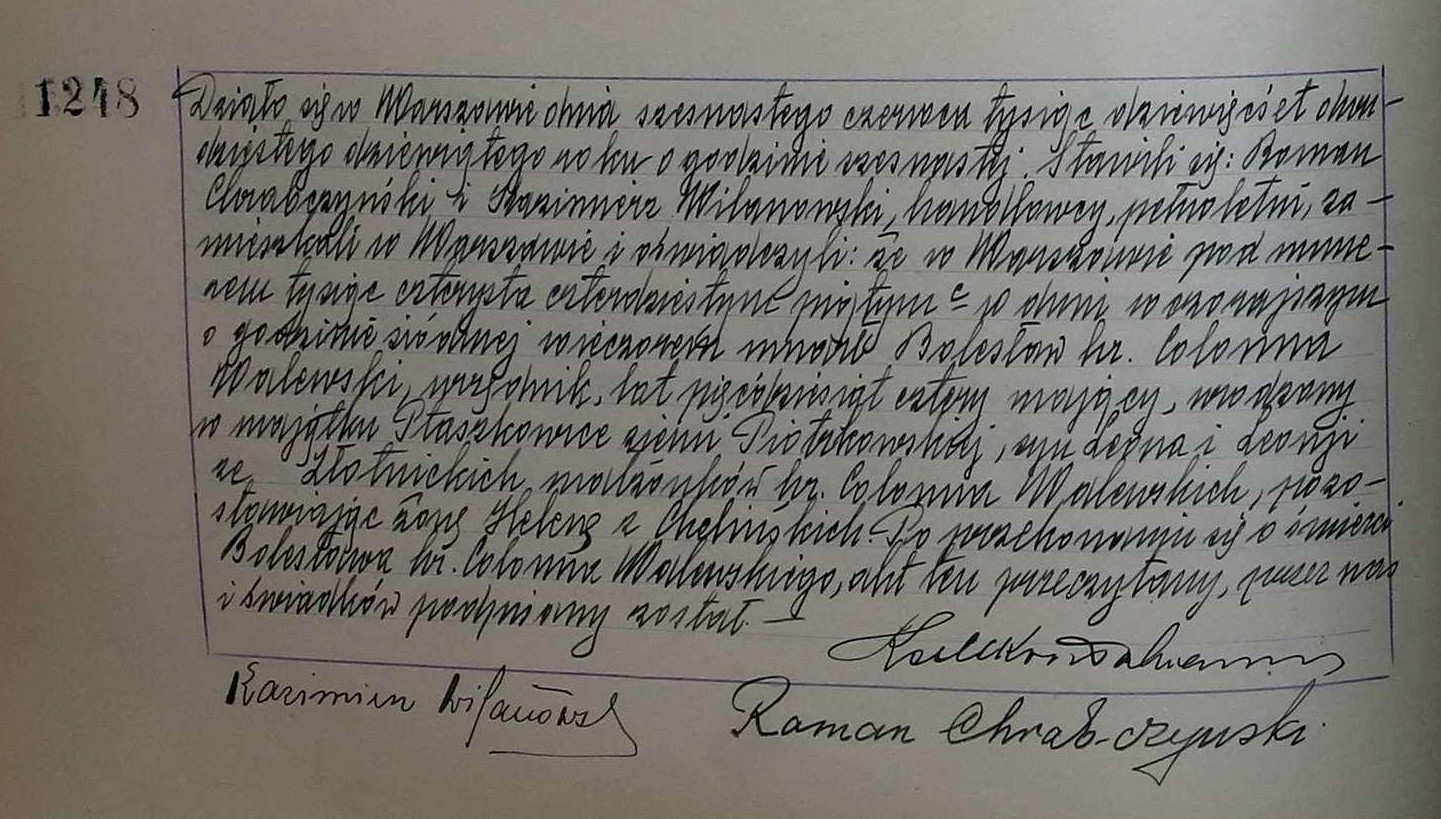 1248
Działo się w Warszawie dnia szesnastego czerwca tysiąc dziewięćset dwu-
dziestego dziewiątego roku o godzinie szesnastej. Stawili się: Roman
Chrabczyński i Kazimierz Wilanowski, handlowcy, pełnoletni, za-
mieszkali w Warszawie i oświadczyli: że w Warszawie pod nume-
rem tysiąc czterysta czterdziestym piątym c w dniu wczorajszym
o godzinie siódmej wieczorem umarł Bolesław hr. Colonna
Walewski, urzędnik, lat pięćdziesiąt cztery mający, urodzony
w majątku Ptaszkowice ziemi Piotrkowskiej, syn Leona i Leonji
ze Złotnickich, małżonków hr. Colonna Walewskich, pozo-
stawiając żonę Helenę z Chelińskich. Po przekonaniu się o śmierci
Bolesława hr. Colonna Walewskiego, akt ten przeczytany, przez nas
i świadków podpisany został. —
Kazimierz Wilanowski Roman Chrabczyński